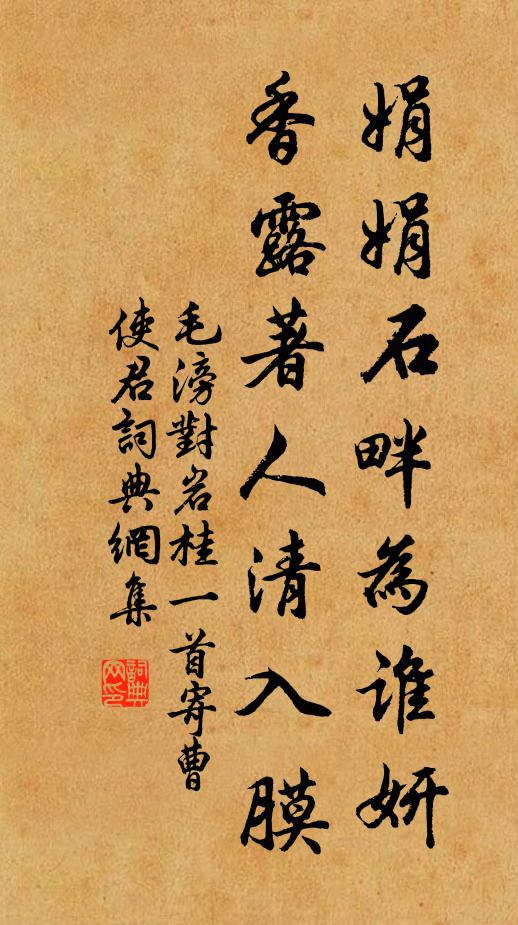 娟娟石畔為誰妍
香露著人清入膜
毛滂對岩桂一首寄曹
使君詞典網集
詞典網印